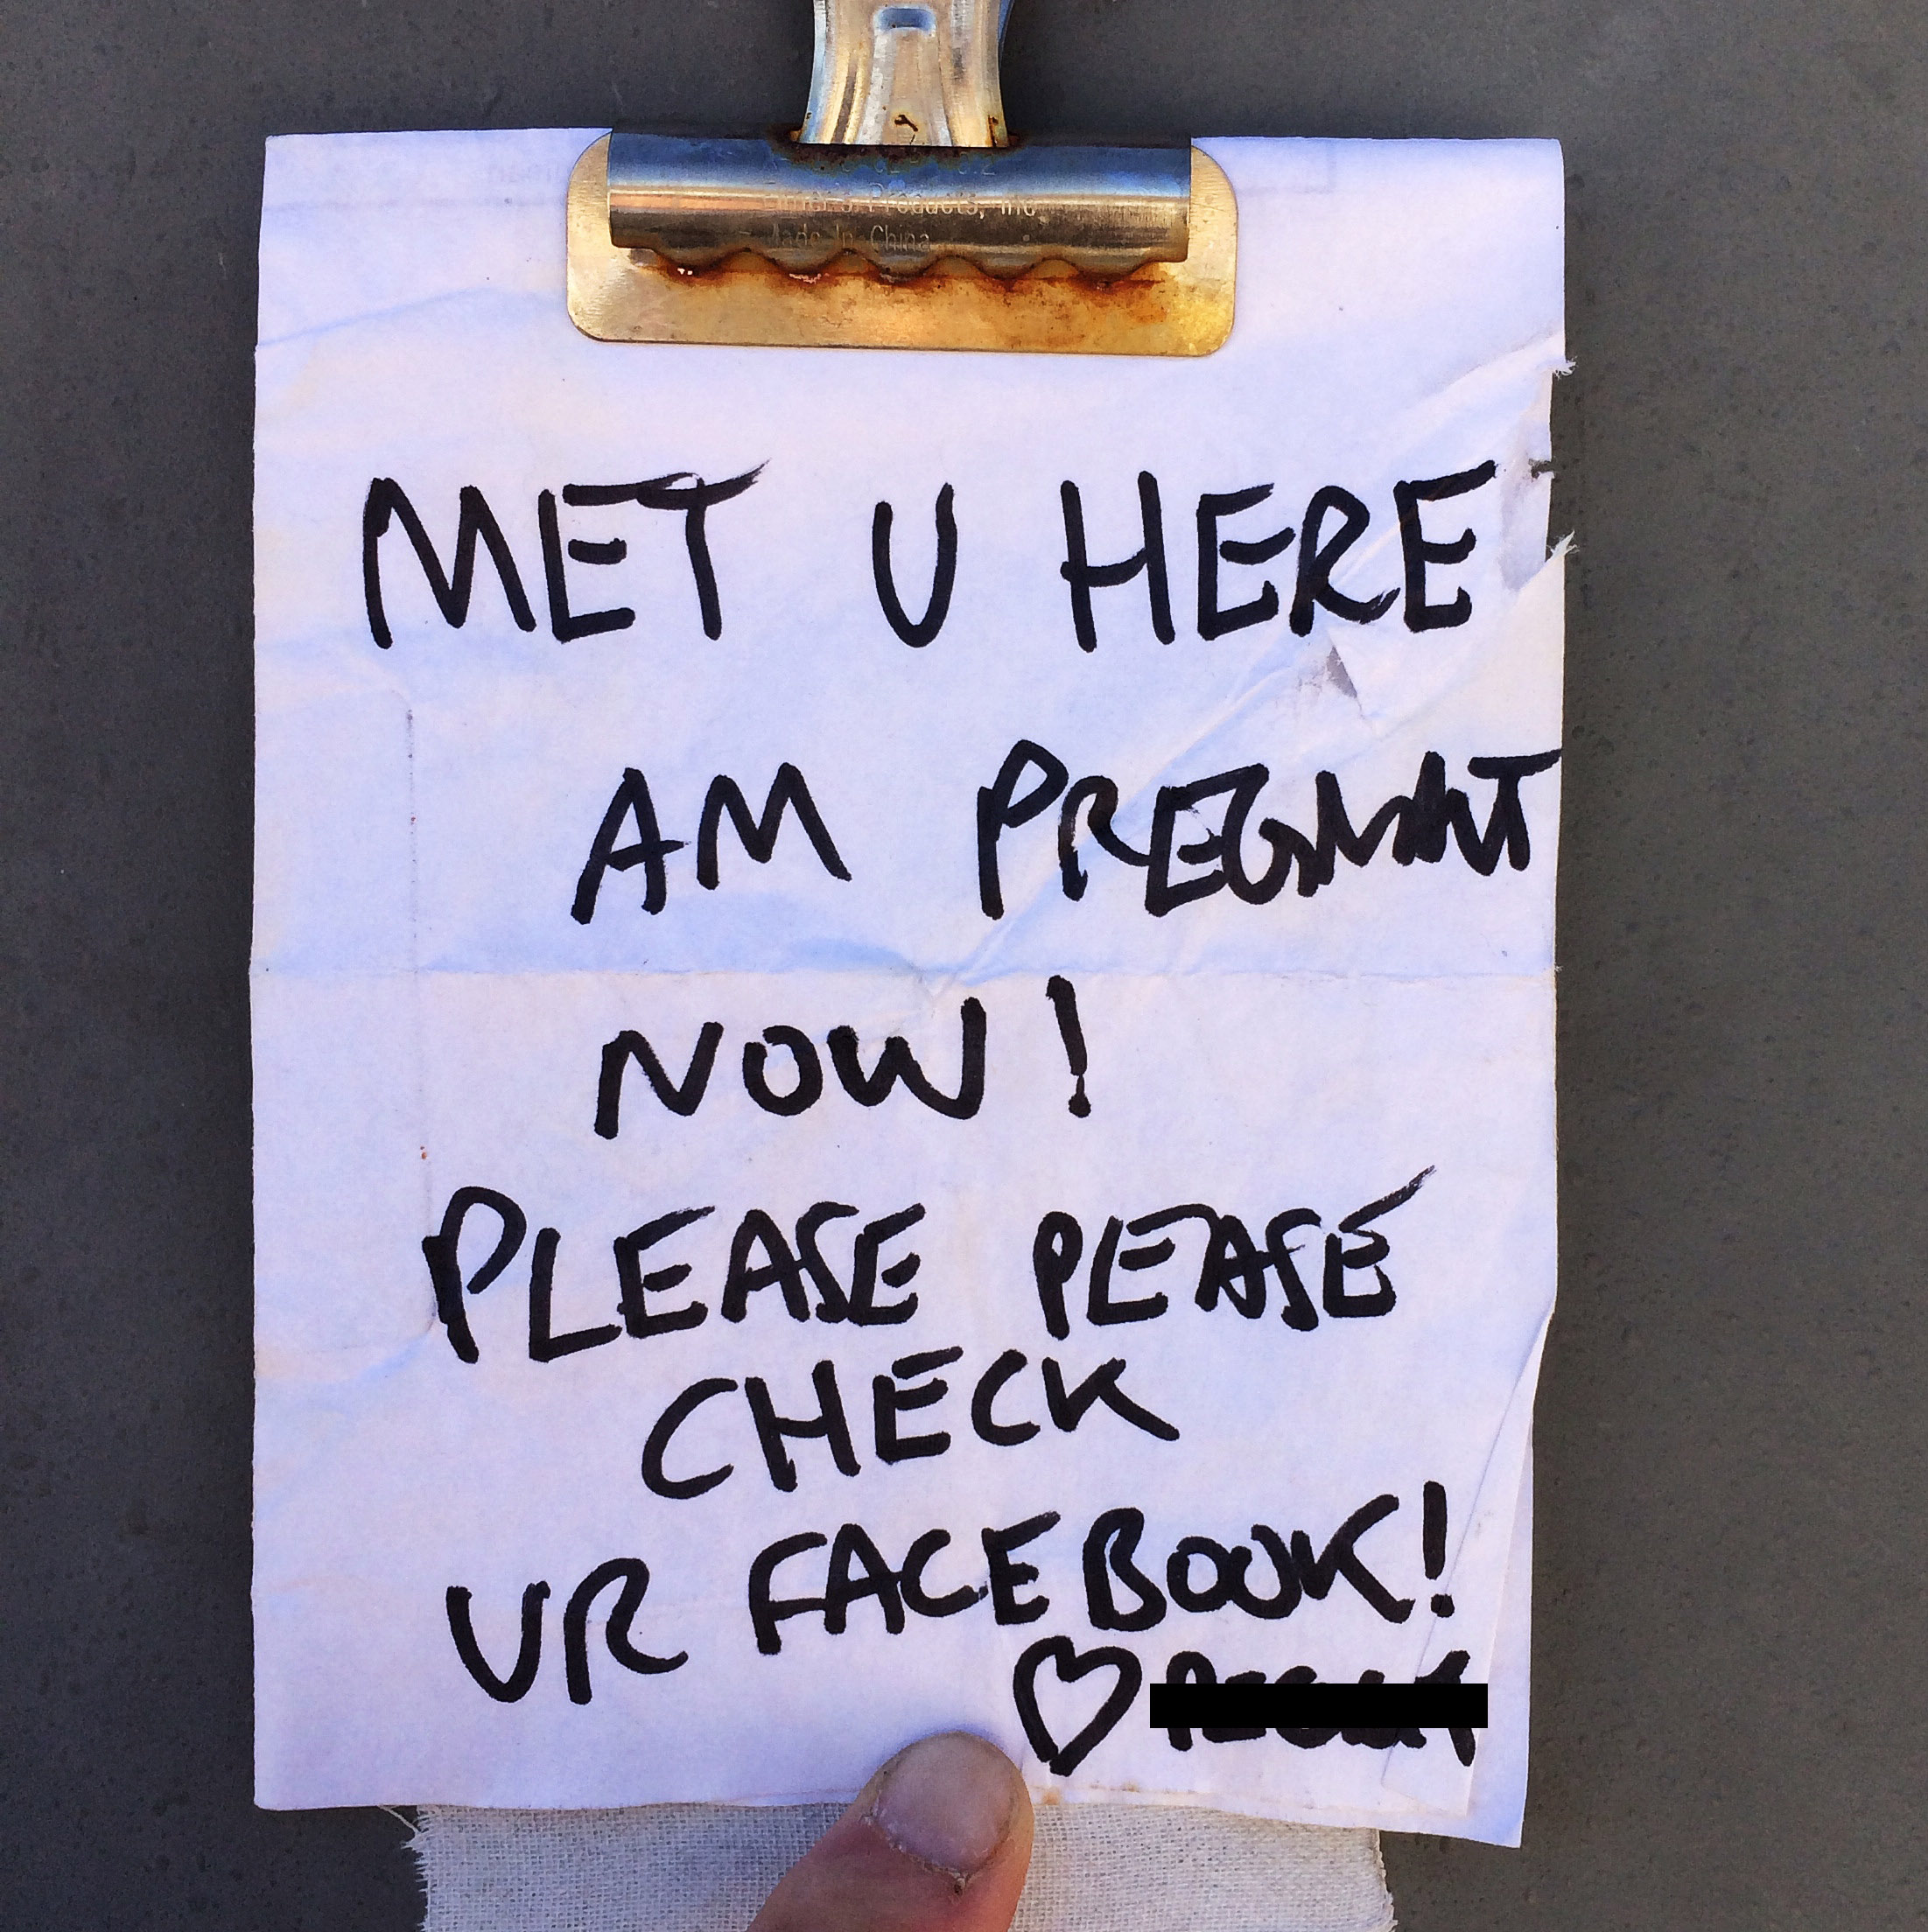 Elmer's Products, Inc
Made In China
MET U HERE
AM PREGNANT
NOW!
PLEASE PLEASE
CHECK
UR FACEBOOK!
♡